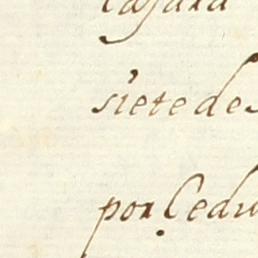 siete de
por Cedu